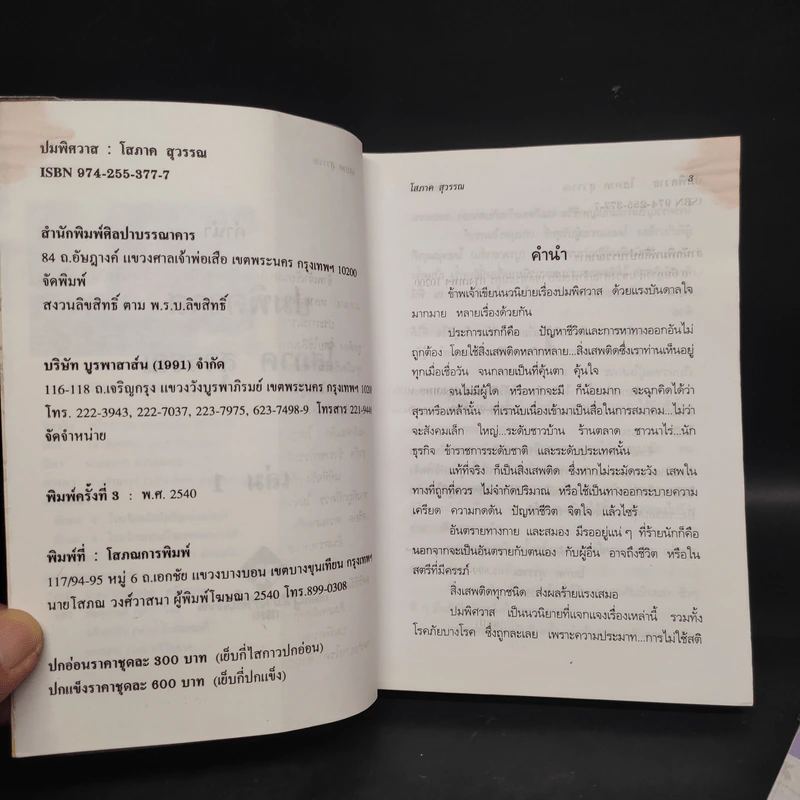 ปมพิศวาส : โสภาค สุวรรณ
ISBN 974-255-377-7
สำนักพิมพ์ศิลปาบรรณาคาร
84 ถ.อัษฎางค์ แขวงศาลเจ้าพ่อเสือ เขตพระนคร กรุงเทพฯ 10200
จัดพิมพ์
สงวนลิขสิทธิ์ ตาม พ.ร.บ.ลิขสิทธิ์
บริษัท บูรพาสาส์น (1991) จำกัด
116-118 ถ.เจริญกรุง แขวงวังบูรพาภิรมย์ เขตพระนคร กรุงเทพฯ 10200
โทร. 222-3943, 222-7037, 223-7975, 623-7498-9 โทรสาร
จัดจำหน่าย
พิมพ์ครั้งที่ 3 : พ.ศ. 2540
พิมพ์ที่ : โสภณการพิมพ์
117/94-95 หมู่ 6 ถ.เอกชัย แขวงบางบอน เขตบางขุนเทียน กรุงเทพฯ
นายโสภณ วงศ์วาสนา ผู้พิมพ์โฆษณา 2540 โทร.899-0308
ปกอ่อนราคาชุดละ 300 บาท (เย็บกี่ไสกาวปกอ่อน)
ปกแข็งราคาชุดละ 600 บาท (เย็บกี่ปกแข็ง)
โสภาค สุวรรณ
3
คำนำ
ข้าพเจ้าเขียนนวนิยายเรื่องปมพิศวาส ด้วยแรงบันดาลใจ
มากมาย หลายเรื่องด้วยกัน
ประการแรกก็คือ ปัญหาชีวิตและการหาทางออกอันไม่
ถูกต้อง โดยใช้สิ่งเสพติดหลากหลาย...สิ่งเสพติดซึ่งเราท่านเห็นอยู่
ทุกเมื่อเชื่อวัน จนกลายเป็นที่คุ้นตา คุ้นใจ
จนไม่มีผู้ใด หรือหากจะมี ก็น้อยมาก จะฉุกคิดได้ว่า
สุราหรือเหล้านั้น ที่เรานับเนื่องเข้ามาเป็นสื่อในการสมาคม...ไม่ว่า
จะสังคมเล็ก ใหญ่...ระดับชาวบ้าน ร้านตลาด ชาวนาไร่...นัก
ธุรกิจ ข้าราชการระดับชาติ และระดับประเทศนั้น
แท้ที่จริง ก็เป็นสิ่งเสพติด ซึ่งหากไม่ระมัดระวัง เสพใน
ทางที่ถูกที่ควร ไม่จำกัดปริมาณ หรือใช้เป็นทางออกระบายความ
เครียด ความกดดัน ปัญหาชีวิต จิตใจ แล้วไซร้
อันตรายทางกาย และสมอง มีรออยู่แน่ ๆ ที่ร้ายนักก็คือ
นอกจากจะเป็นอันตรายกับตนเอง กับผู้อื่น อาจถึงชีวิต หรือใน
สตรีที่มีครรภ์
สิ่งเสพติดทุกชนิด ส่งผลร้ายแรงเสมอ
ปมพิศวาส เป็นนวนิยายที่แจกแจงเรื่องเหล่านี้ รวมทั้ง
โรคภัยบางโรค ซึ่งถูกละเลย เพราะความประมาท...การไม่ใช้สติ